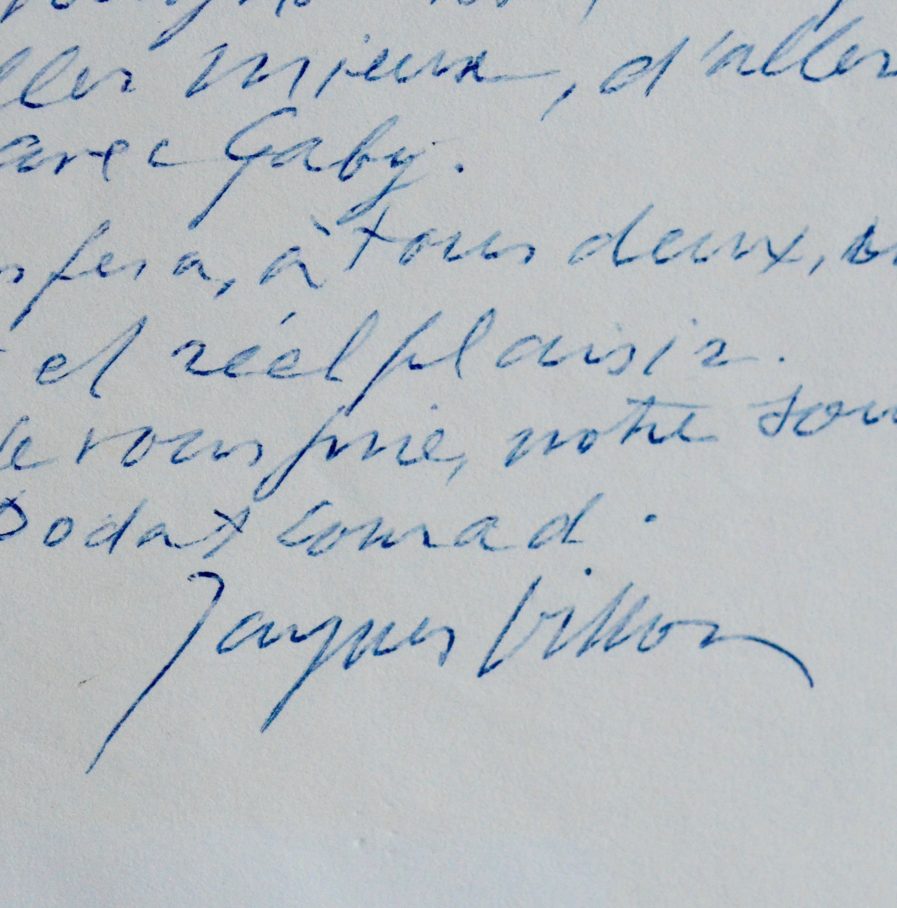 ller mieux, d'aller
avec Gaby.
s fera, à tous deux, u
et réel plaisir.
Je vous prie, notre sou
Dodat Conrad.
Jacques Villon